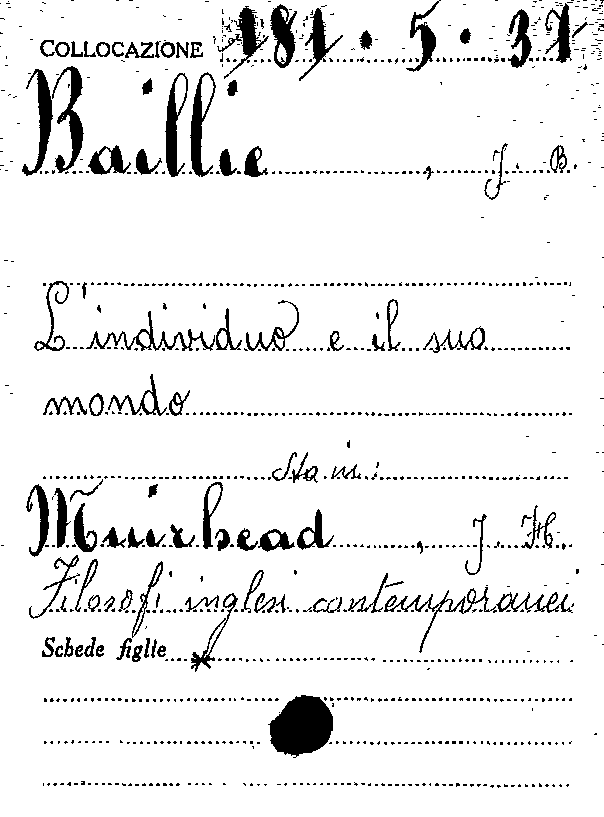 COLLOCAZIONE 181.5.37
Baillie, J. B.
L'individuo e il suo
mondo
Sta in:
Muirhead, J. H.
Filosofi inglesi contemporanei
Schede figlie